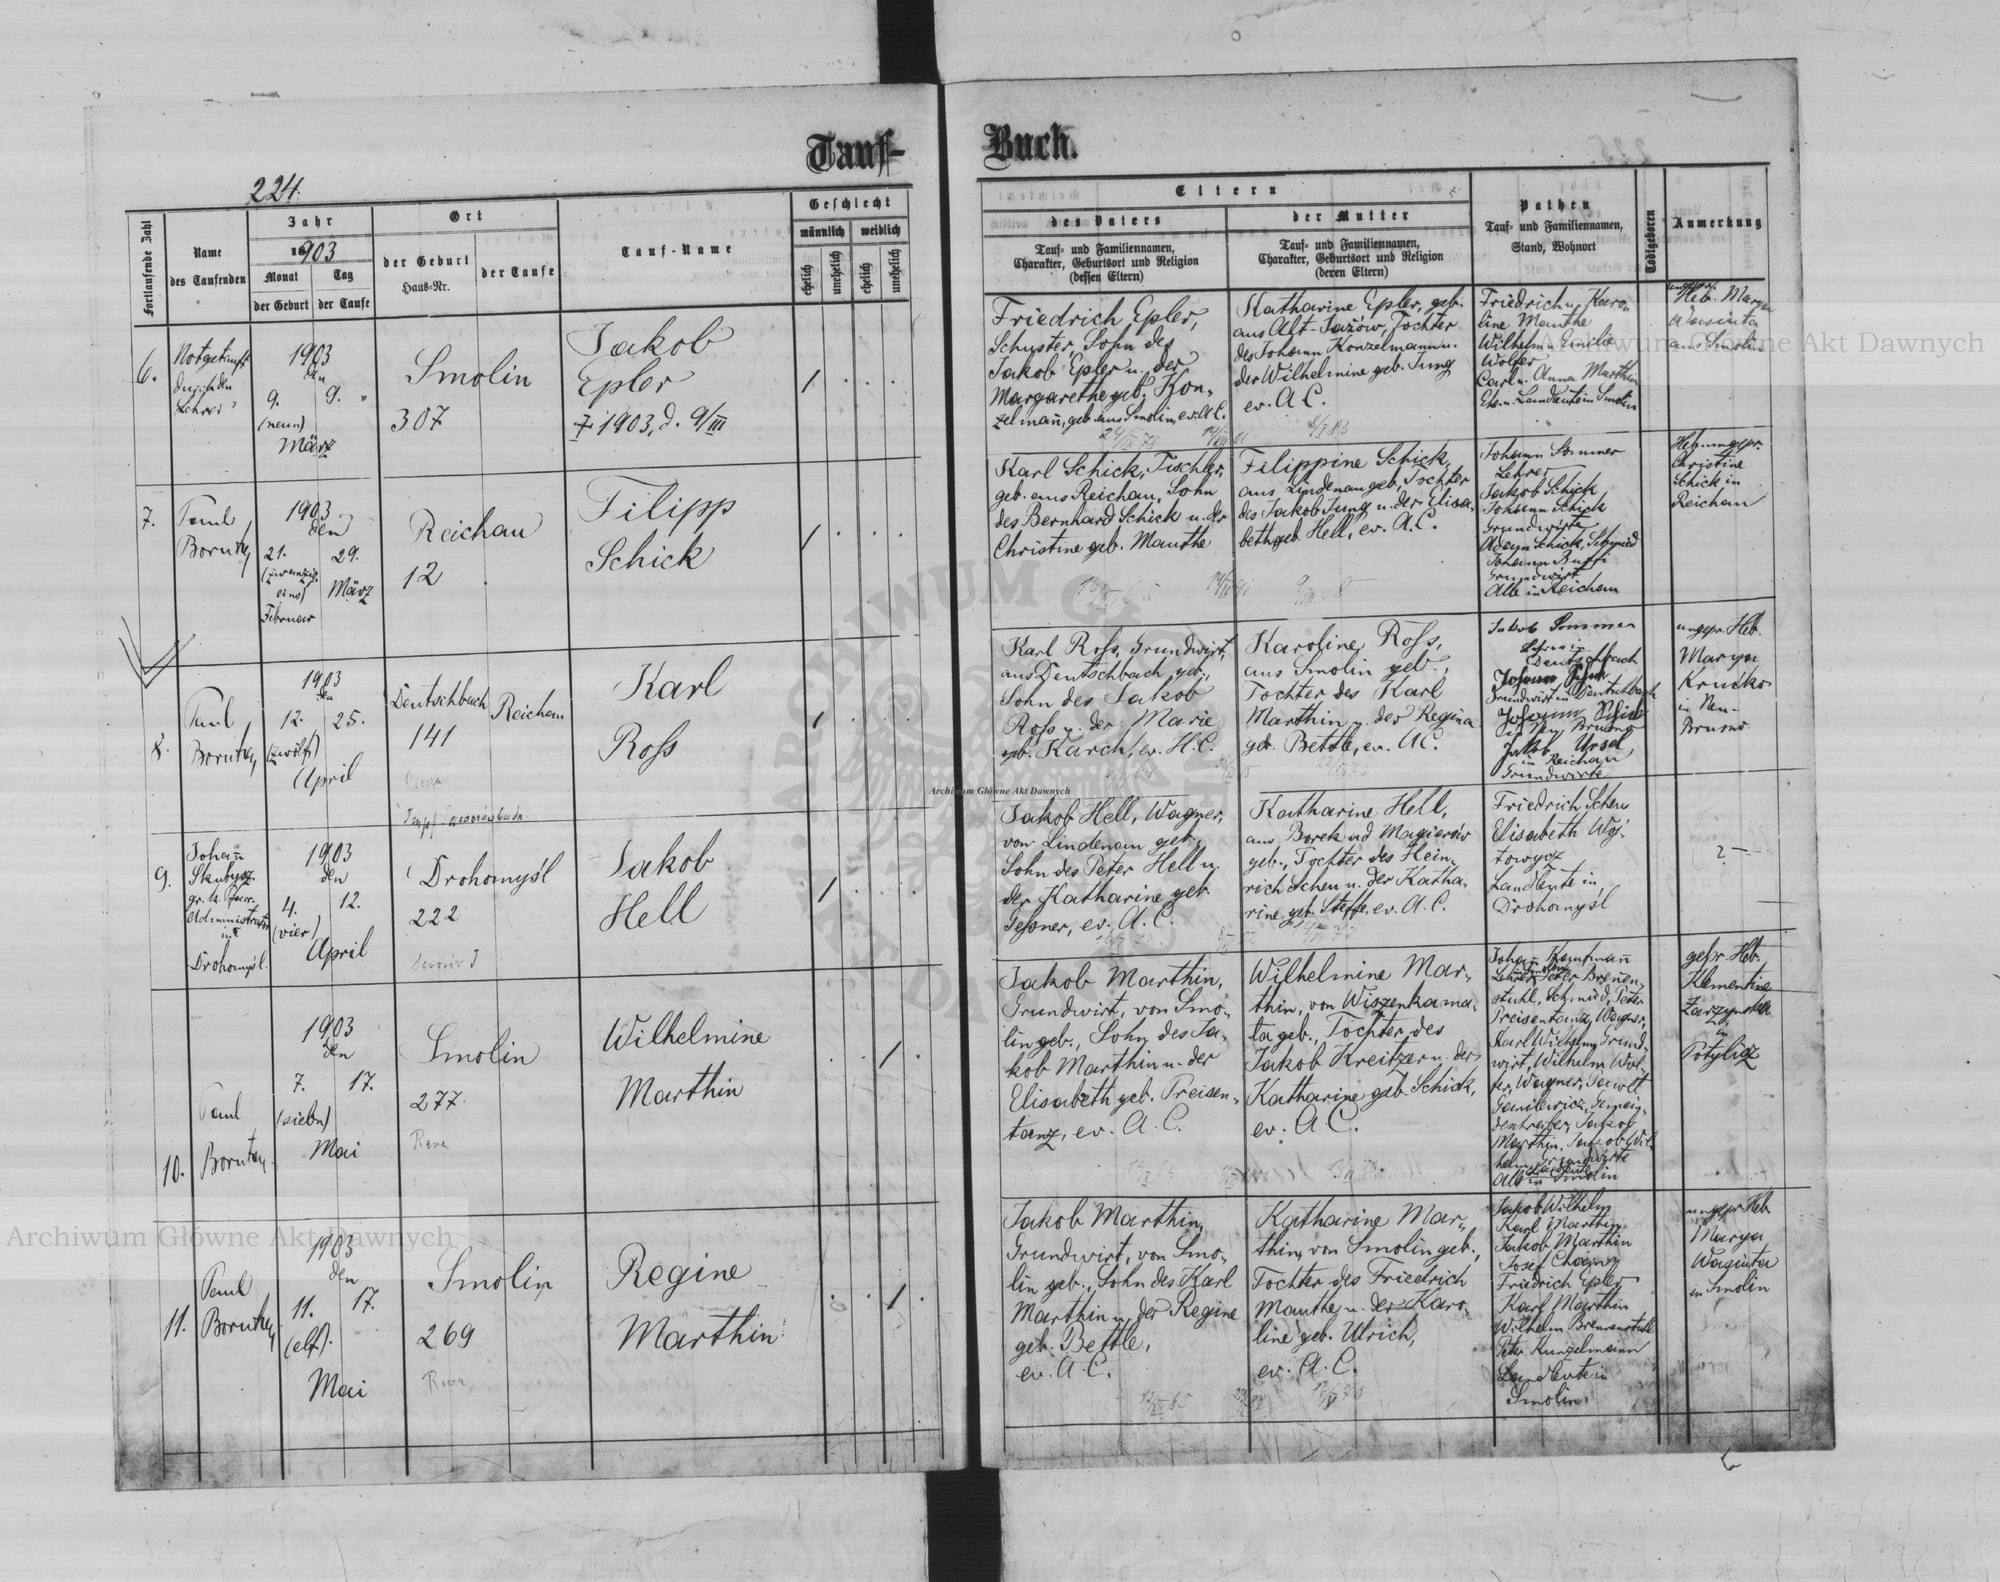 Tauf-
Buch.
224.
Fortlaufende Zahl
Name
des Taufenden
Jahr
1903
Monat
der Geburt
Tag
der Taufe
Ort
der Geburt
Haus-Nr.
der Taufe
Tauf-Name
Geschlecht
männlich
weiblich
ehelich
unehelich
ehelich
unehelich
Eltern
des Vaters
Tauf- und Familiennamen,
Charakter, Geburtsort und Religion
(dessen Eltern)
der Mutter
Tauf- und Familiennamen,
Charakter, Geburtsort und Religion
(deren Eltern)
Pathen
Tauf- und Familiennamen,
Stand, Wohnort
Todtgeboren
Anmerkung
6.
Notgetauft
durch den
Lehrer
1903
den
9. 9.
(neun)
März
Smolin
307
Jakob
Epler
1903, d. 9/III
Friedrich Epler,
Schuster, Sohn des
Jakob Epler u. der
Margarethe geb. Kon-
zelmañ, geb. aus Smolin, ev. A.C.
Katharine Epler, geb.
aus Alt-Jażów, Tochter
des Johann Konzelmann u.
der Wilhelmine geb. Jung
ev. A.C.
Friedrich u. Karo-
line Manthe
Wilhelm u. Emilie
Wolfer
Carl u. Anna Marthin
Landleute in Smolin
Heb. Marya
Wasiuta
aus Smolin
7.
Paul
Borutzky
1903
den
21. 29.
(zwanzig
eins) März
Februar
Reichau
12
Filipp
Schick
Karl Schick, Tischler,
geb. aus Reichau, Sohn
des Bernhard Schick u. der
Christine geb. Manthe
Filippine Schick,
aus Lindenau geb., Tochter
des Jakob Jung u. der Elisa-
beth geb. Hell, ev. A.C.
Johann Sommer
Lehrer
Jakob Schick
Johann Schick
Grundwirte
Adam Schick, Schmied
Johann
Grundwirt
Alle in Reichau
Heb. ungepr.
Christine
Schick in
Reichau
8.
Paul
Borutzky
1903
den
12. 25.
(zwölf)
April
Deutschbach Reichau
141
Karl
Roß
Karl Roß, Grundwirt,
aus Deutschbach geb.,
Sohn des Jakob
Roß u. der Marie
geb. Karch, ev. H.C.
Karoline Roß,
aus Smolin geb.,
Tochter des Karl
Marthin u. der Regina
geb. Bettle, ev. A.C.
Jakob Sommer
Deutschbach
Johann
Grundwirt in Deutschbach
Johann
Jakob Ursel,
in Reichau
Grundwirte
ungepr. Heb.
Marya
Krucko
in Neu-
Brusno
9.
Johañ
Skubysz
gr. k. Pfarr-
Administrator
in
Drohomyśl.
1903
den
4. 12.
(vier)
April
Drohomyśl
222
Jakob
Hell
Jakob Hell, Wagner,
von Lindenau geb.,
Sohn des Peter Hell u.
der Katharine geb.
Geßner, ev. A.C.
Katharine Hell,
aus Borek ad Magierów
geb., Tochter des Hein-
rich Scheu u. der Katha-
rine geb. Steffe, ev. A.C.
Friedrich Scheu
Elisabeth Woj-
towycz
Landleute in
Drohomyśl
?
10.
Paul
Borutzky
1903
den
7. 17.
(sieben)
Mai
Smolin
277
Rawa
Wilhelmine
Marthin
Jakob Marthin,
Grundwirt, von Smo-
lin geb., Sohn des Ja-
kob Marthin u. der
Elisabeth geb. Preisen-
tanz, ev. A.C.
Wilhelmine Mar-
thin, von Wiszenka ma-
ta geb., Tochter des
Jakob Kreitzer u. der
Katharine geb. Schick,
ev. A.C.
Johañ Kaufmañ
Lehrer, Peter Breñen-
stuhl, Schmied, Peter
Preisentanz, Wagner,
Karl Wilhelm, Grund-
wirt, Wilhelm Wol-
fer, Wagner,
Jakob
Marthin, Jakob Wil-
helm, Grundwirte
Alle in Smolin
gepr. Heb.
Klementine
in
Potylicz
11.
Paul
Borutzky
1903
den
11. 17.
(elf).
Mai
Smolin
269
Rawa
Regine
Marthin
Jakob Marthin,
Grundwirt, von Smo-
lin geb., Sohn des Karl
Marthin u. der Regine
geb. Bettle,
ev. A.C.
Katharine Mar-
thin, von Smolin geb.,
Tochter des Friedrich
Manthe u. der Karo-
line geb. Ulrich,
ev. A.C.
Jakob Wilhelm
Karl Marthin
Jakob Marthin
Josef
Friedrich Epler
Karl Marthin
Wilhelm Brennenstuhl
Peter Kunzelmann
Landleute in
Smolin
ungepr. Heb.
Marya
Wasiuta
in Smolin
Archiwum Główne Akt Dawnych
Archiwum Główne Akt Dawnych
Archiwum Główne Akt Dawnych